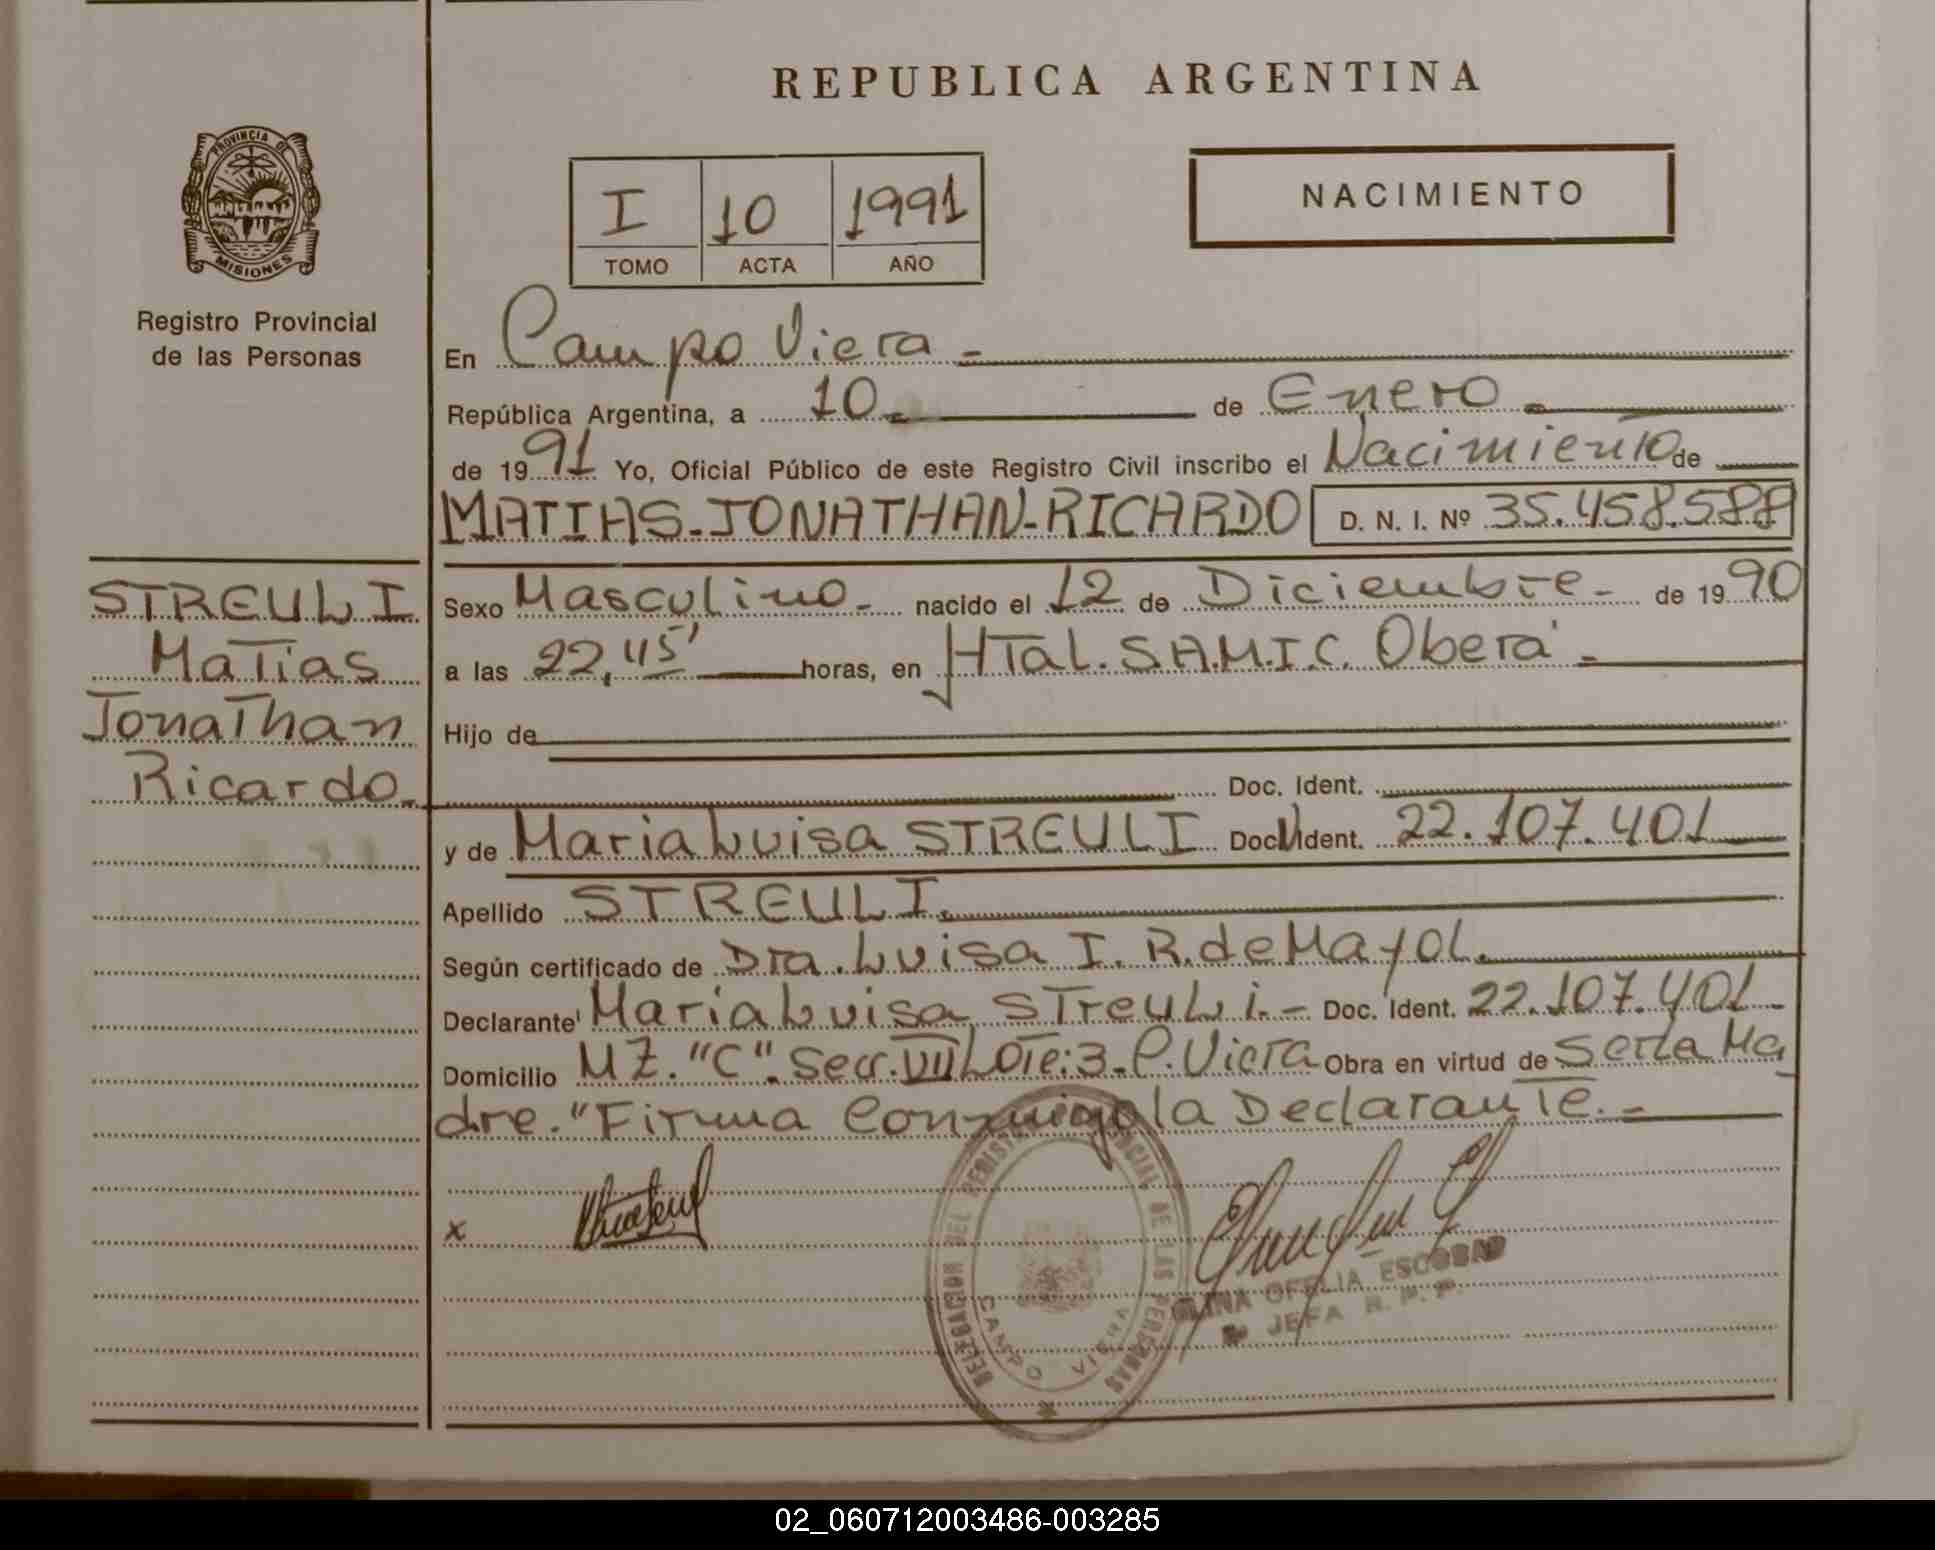 REPUBLICA ARGENTINA
PROVINCIA DE
MISIONES
Registro Provincial
de las Personas
I 10 1991
TOMO ACTA AÑO
NACIMIENTO
En Campo Viera.-
República Argentina, a 10.- de Enero.-
de 1991 Yo, Oficial Público de este Registro Civil inscribo el Nacimiento de
MATIAS-JONATHAN-RICARDO D. N. I. Nº 35.458.588
STREULI
Matias
Jonathan
Ricardo.-
Sexo Masculino.- nacido el 12 de Diciembre.- de 1990
a las 22,45' horas, en HTal. S.A.M.I.C. Oberá.-
Hijo de
Doc. Ident.
y de Maria Luisa STREULI Doc. Ident. 22.107.401
Apellido STREULI.
Según certificado de Dra. Luisa I. R. de Mayol.
Declarante Maria Luisa STreuli.- Doc. Ident. 22.107.401.-
Domicilio MZ. "C". Secc. VII LOTe: 3.- C. Viera Obra en virtud de Ser la Ma
dre. "Firma Conmigo la Declarante.-
x
DELEGACION DEL REGISTRO PROVINCIAL DE LAS PERSONAS
CAMPO VIERA
OFELIA ESCOBAR
JEFA R. P. P.
02_060712003486-003285